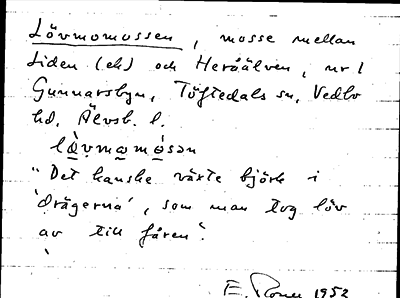 Lövmomossen, mosse mellan
Liden (ek) och Heråälven, nr 1
Gunnarsbyn, Töftedals sn, Vedbo
hd, Älvsb. l.
"Det kanske växte björk i
'drägerna', som man tog löv
av till fåren".
E. 1952